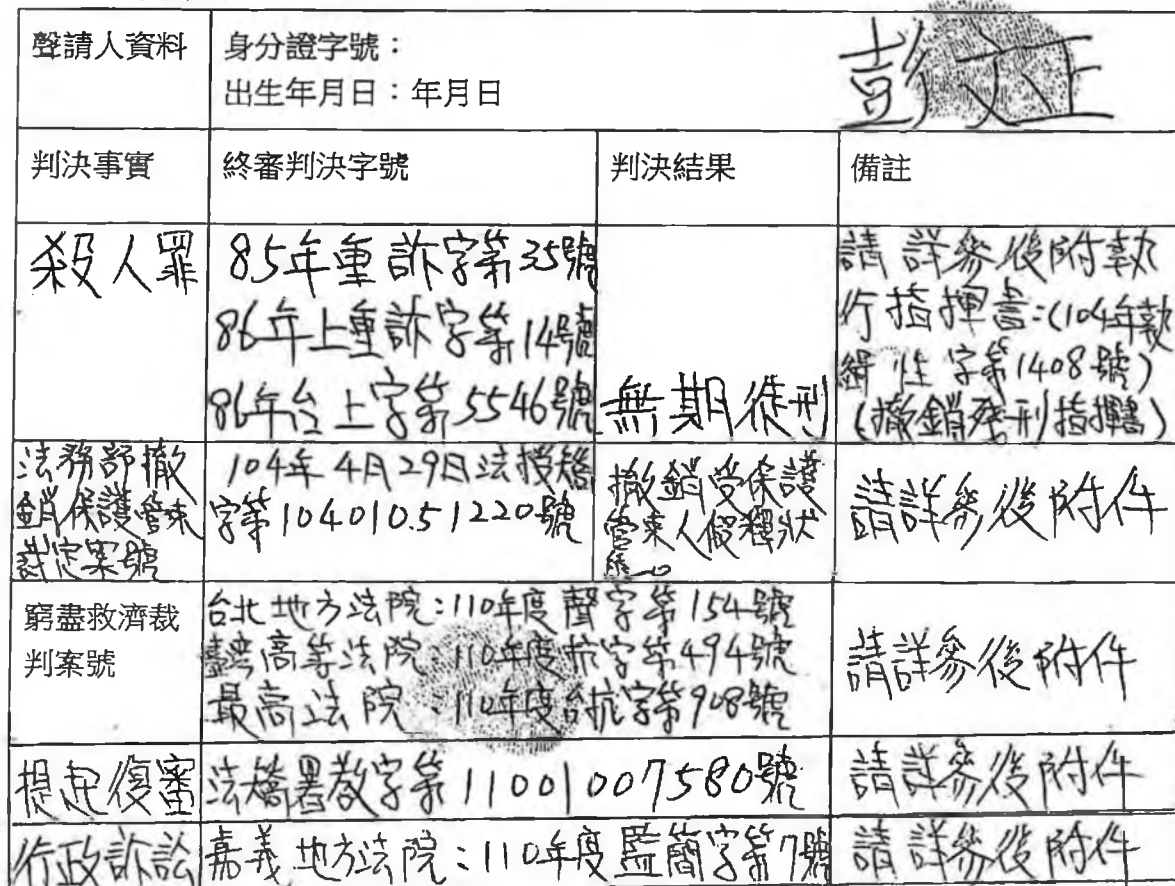 聲請人資料
身分證字號：
出生年月日：年月日
彭文正
判決事實
終審判決字號
判決結果
備註
殺人罪
85年重訴字第35號
86年上重訴字第14號
86年台上字第5546號
無期徒刑
請詳參後附執
行指揮書：(104年執
緝性字第1408號)
(撤銷殘刑指揮書)
法務部撤
銷保護管束
裁定案號
104年4月29日法授矯
字第10401051220號
撤銷受保護
管束人假釋狀
請詳參後附件
窮盡救濟裁
判案號
台北地方法院：110年度聲字第154號
臺灣高等法院：110年度抗字第494號
最高法院：110年度台抗字第908號
請詳參後附件
提起復審
法矯署教字第11001007580號
請詳參後附件
行政訴訟
嘉義地方法院：110年度監簡字第7號
請詳參後附件